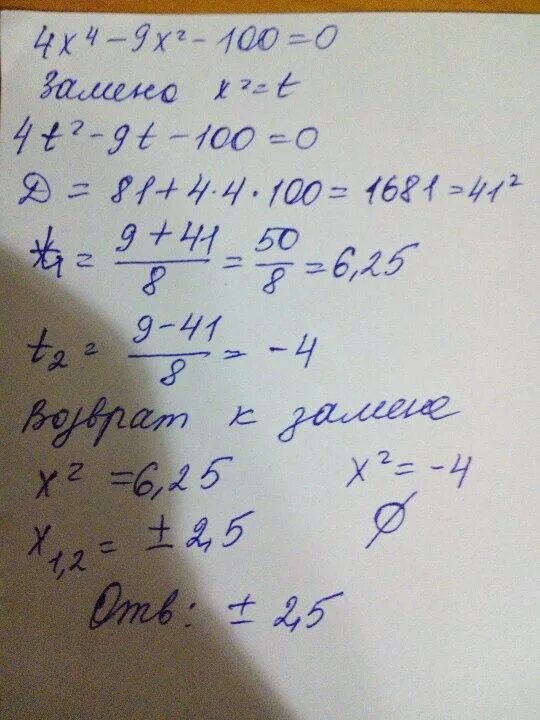 4x⁴ - 9x² - 100 = 0
Замена x² = t
4t² - 9t - 100 = 0
D = 81 + 4·4·100 = 1681 = 41²
t₁ = (9 + 41)/8 = 50/8 = 6,25
t₂ = (9 - 41)/8 = -4
Возврат к замене
x² = 6,25 x² = -4
x₁,₂ = ± 2,5 ∅
Отв: ± 2,5